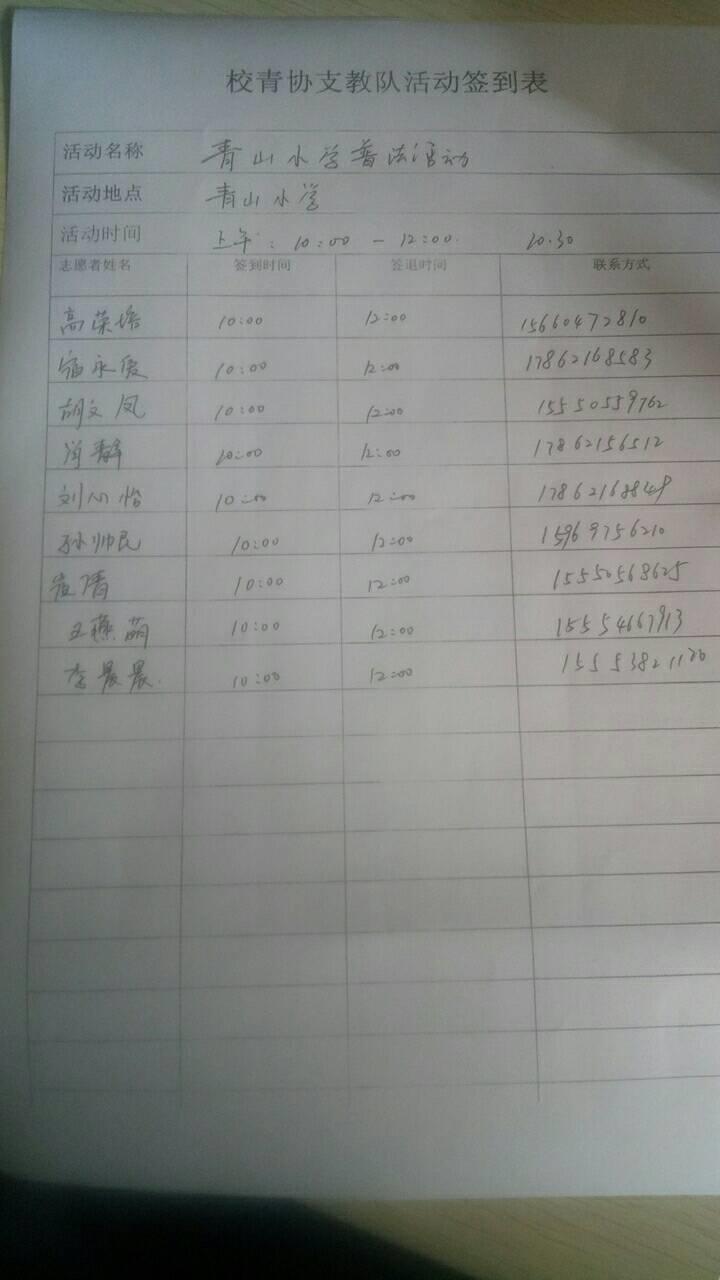 校青协支教队活动签到表
活动名称 青山小学普法活动
活动地点 青山小学
活动时间 上午：10:00 - 12:00. 10.30
志愿者姓名 签到时间 签退时间 联系方式
高荣培 10:00 12:00 15660472810
宿永俊 10:00 12:00 17862168583
胡文凤 10:00 12:00 15550559762
10:00 12:00 17862156512
刘心怡 10:00 12:00 17862168849
孙帅民 10:00 12:00 15969756210
崔倩 10:00 12:00 15550568625
王燕萌 10:00 12:00 15554667913
李晨晨. 10:00 12:00 15553821120